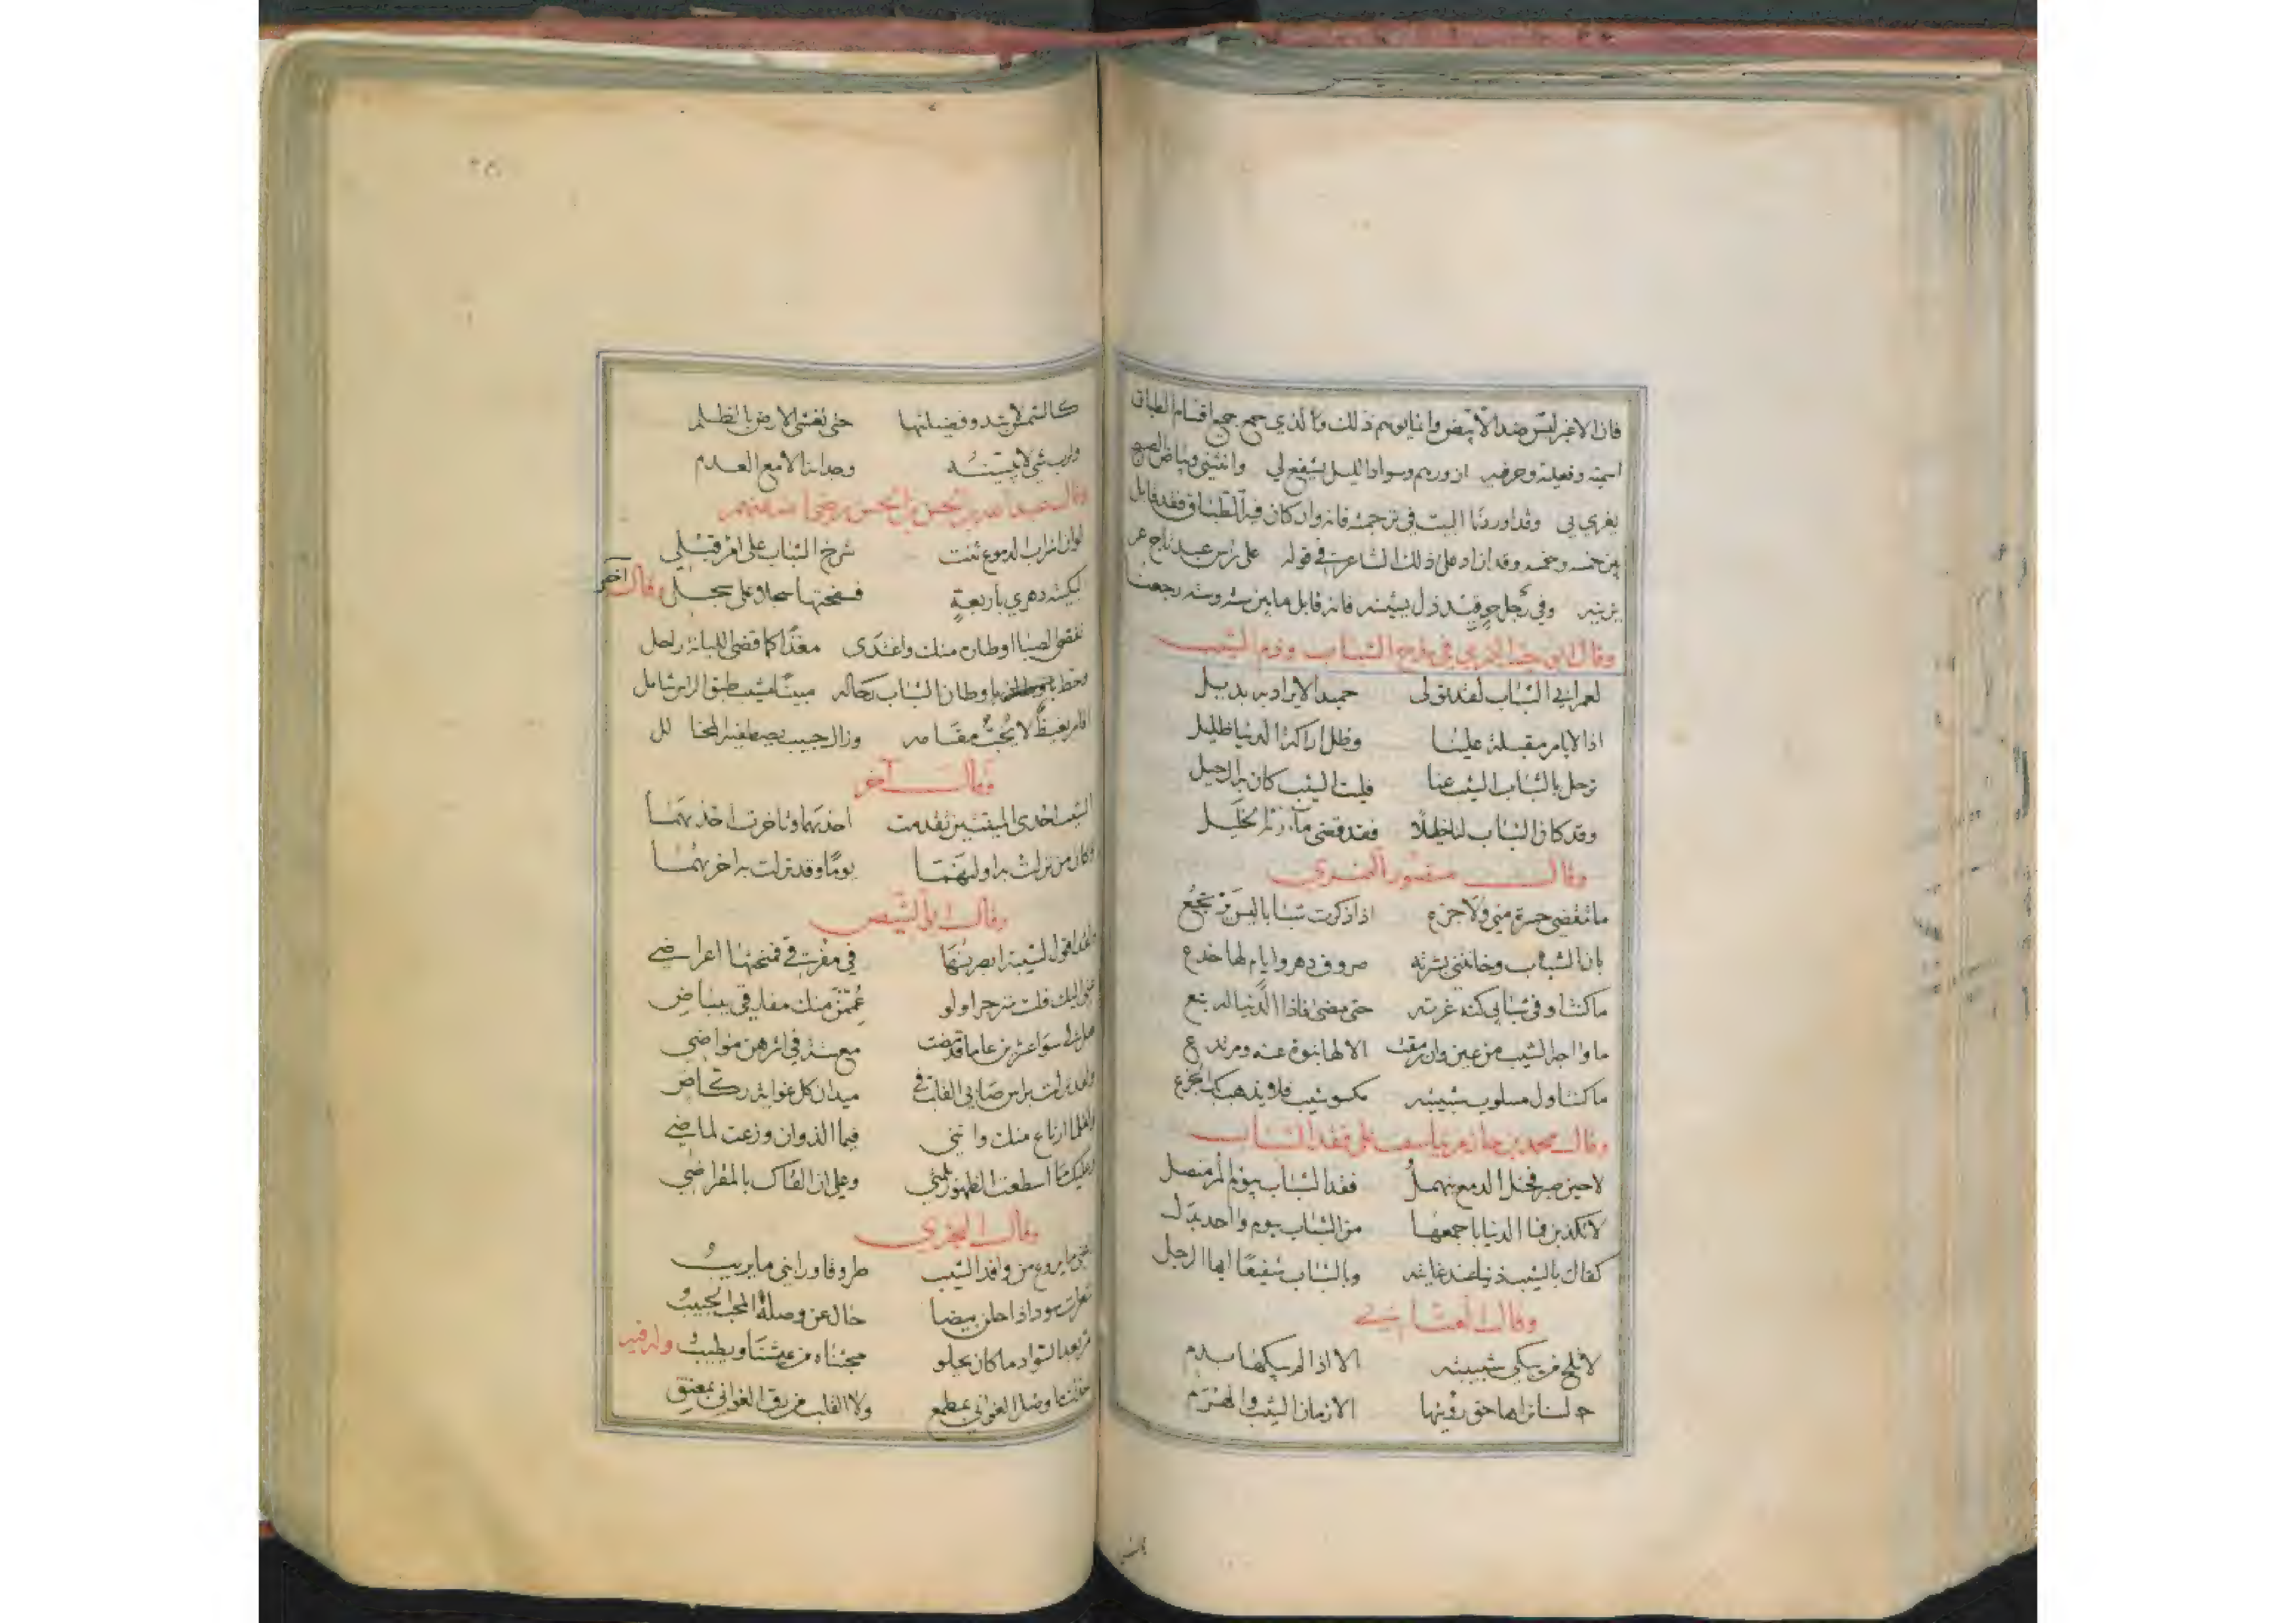 فان الاغبر ليس ضد الأبيض وانما يوهم ذلك وما الذي جمع جميع اقسام الطباق
اسمية وفعلية وحرفية ازورهم وسواد الليل يشفع لي وانثني وبياض الصبح
يغري بي وقد اوردنا البيت في ترجمته فانه وان كان فيه الطباق فقد قابل
بين خمسه وخمسه وقد زاد على ذلك الشاعر في قوله على راس عبد تاج عز
يزينه وفي رجل حر قيد ذل يشينه فانه قابل ما بين سته وسته رجعنا
وقال ابو حية النميري في مدح الشباب وذم الشيب
لعمر ابي الشباب لقد تولى حميدا لا يراد به بديل
اذا الايام مقبلة علينا وظل اراكة الدنيا ظليل
ترحل بالشباب الشيب عنا فليت الشيب كان به الرحيل
وقد كان الشباب لنا خليلا فقد قضى مآربه الخليل
وقال منصور النمري
ما تنقضي حسرة مني ولا جزع اذا ذكرت شبابا ليس يرتجع
بان الشباب وخانتني بشرته صروف دهر وايام لها خدع
ما كنت اوفي شبابي كنه غرته حتى مضى فاذا الدنيا له تبع
ما واجه الشيب من عين وان رمقت الا لها نبوة عنه ومرتدع
ما كنت اول مسلوب شبيبته مكسو شيب فلا يذهب بك الجزع
وقال محمد بن حازم يتاسف على فقد الشباب
لا حين صبر فخل الدمع ينهمل فقد الشباب بيوم المرء متصل
لا تكذبن فما الدنيا باجمعها من الشباب بيوم واحد بدل
كفاك بالشيب ذنبا عند غانية وبالشباب شفيعا ايها الرجل
وقال العتابي
لا تلح من يبكي شبيبته الا اذا لم يبكها بدم
لسنا نراها حق رؤيتها الا زمان الشيب والهرم
كالشمس لا تبدو فضيلتها حتى تغشى الارض بالظلم
ولرب شي لا يبينه وجداننا الا مع العدم
وقال عبد الله بن الحسن بن الحسن رضي الله عنهم
لو ان اسراب الدموع ثنت شرخ الشباب على امرء قبلي
لبكيته دهري باربعة فسفحتها سجلا على سجل وقال اخر
تقضى لصبا اوطان منك واغتدى مغذا كما قضى اللبانة راحل
وحط باوطان الشباب رحاله مبينا مشيب طبق الراس شامل
اقام بغيظ لا يحب مقامه وزال حبيب يصطفيه المخالل
وقال آخر
الشيب احدى الميتتين تقدمت احديهما وتاخرت احديهما
وكان من نزلت به اوليهما يوما وقد نزلت به اخريهما
وقال ابو الشيص
ولقد اقول لشيبة ابصرتها في مفرقي فمنحتها اعراضي
عني اليك فلست منزجرا ولو عممن منك مفارقي ببياض
هل لي سوا عشرين عاما قد مضت مع ستة في اثرهن مواضي
ولقد نزلت براس صابي القلب في ميدان كل غواية ركاض
ولقلما ارتاع منك وانني فيما الذ وان وزعت لماضي
فعليك ما اسطعت الظهور بلمتي وعلي ان القاك بالمقراضي
وقال البحتري
ما يروع من وافد الشيب طروقا ورابني ما يريب
سود اذا حلن بيضا حال عن وصله المحب الحبيب
بعد السواد ما كان يحلو مجتناه من عيشنا ويطيب وله فيه
وصل الغواني بمطمع ولا القلب من رق الغواني بمعتق